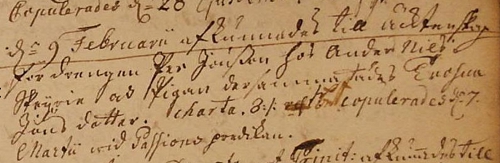 Copulerades d:
dn 9 Februarii afkunnades till ächtenskap
för drengen Per Jönson hos Ander Niels
och Pigan dersammastädes
Jöns dotter. Charta. 8:/: Copulerades d: 7.
Martii wid Passions predikan.
Trinit: afkunnades till